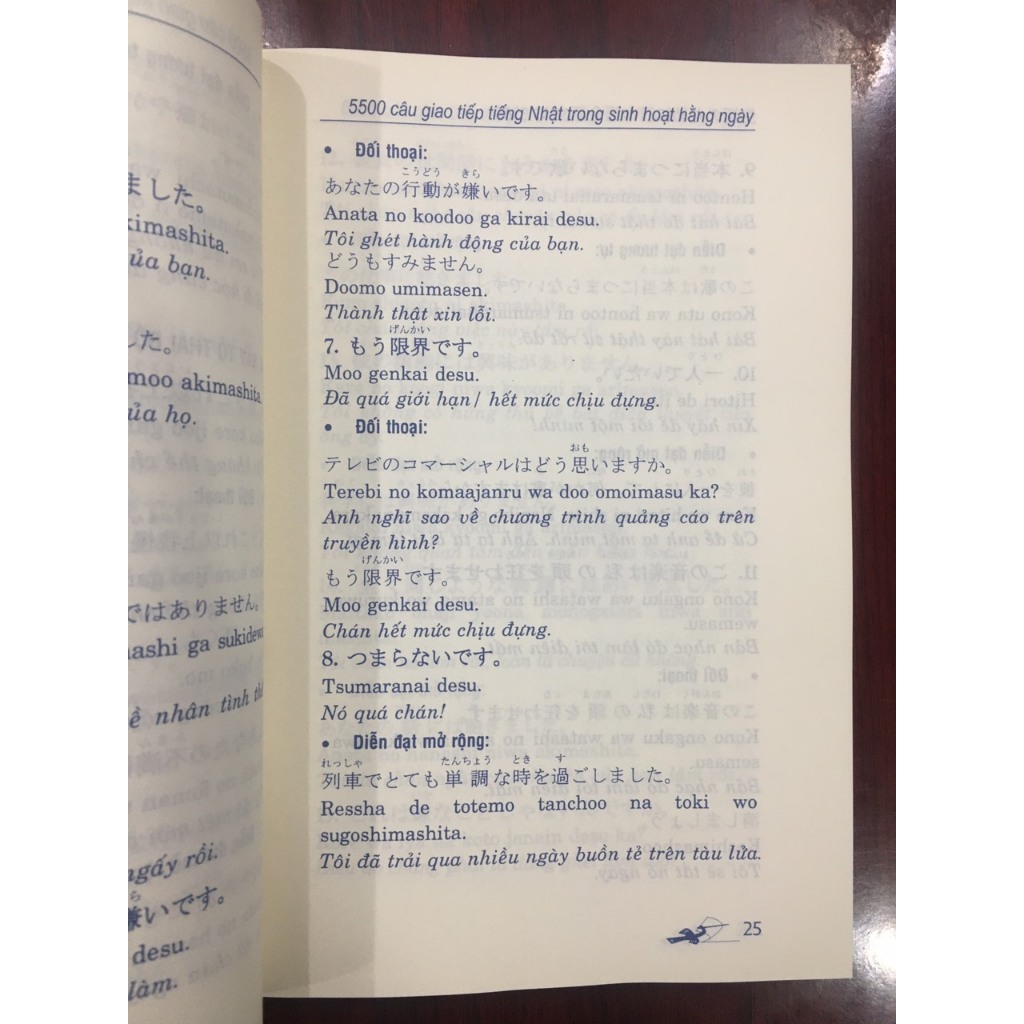 ました。
kimashita.
ủa bạn.
した。
moo akimashita.
ủa họ.
ではありません。
ề nhân tình
ngấy rồi.
嫌いです。
desu.
làm.
5500 câu giao tiếp tiếng Nhật trong sinh hoạt hằng ngày
• Đối thoại:
こうどう きら
あなたの行動が嫌いです。
Anata no koodoo ga kirai desu.
Tôi ghét hành động của bạn.
どうもすみません。
Doomo umimasen.
Thành thật xin lỗi.
げんかい
7. もう限界です。
Moo genkai desu.
Đã quá giới hạn/ hết mức chịu đựng.
• Đối thoại:
おも
テレビのコマーシャルはどう思いますか。
Terebi no komaajanru wa doo omoimasu ka?
Anh nghĩ sao về chương trình quảng cáo trên
truyền hình?
げんかい
もう限界です。
Moo genkai desu.
Chán hết mức chịu đựng.
8. つまらないです。
Tsumaranai desu.
Nó quá chán!
• Diễn đạt mở rộng:
れっしゃ たんちょう とき す
列車でとても単調な時を過ごしました。
Ressha de totemo tanchoo na toki wo
sugoshimashita.
Tôi đã trải qua nhiều ngày buồn tẻ trên tàu lửa.
25